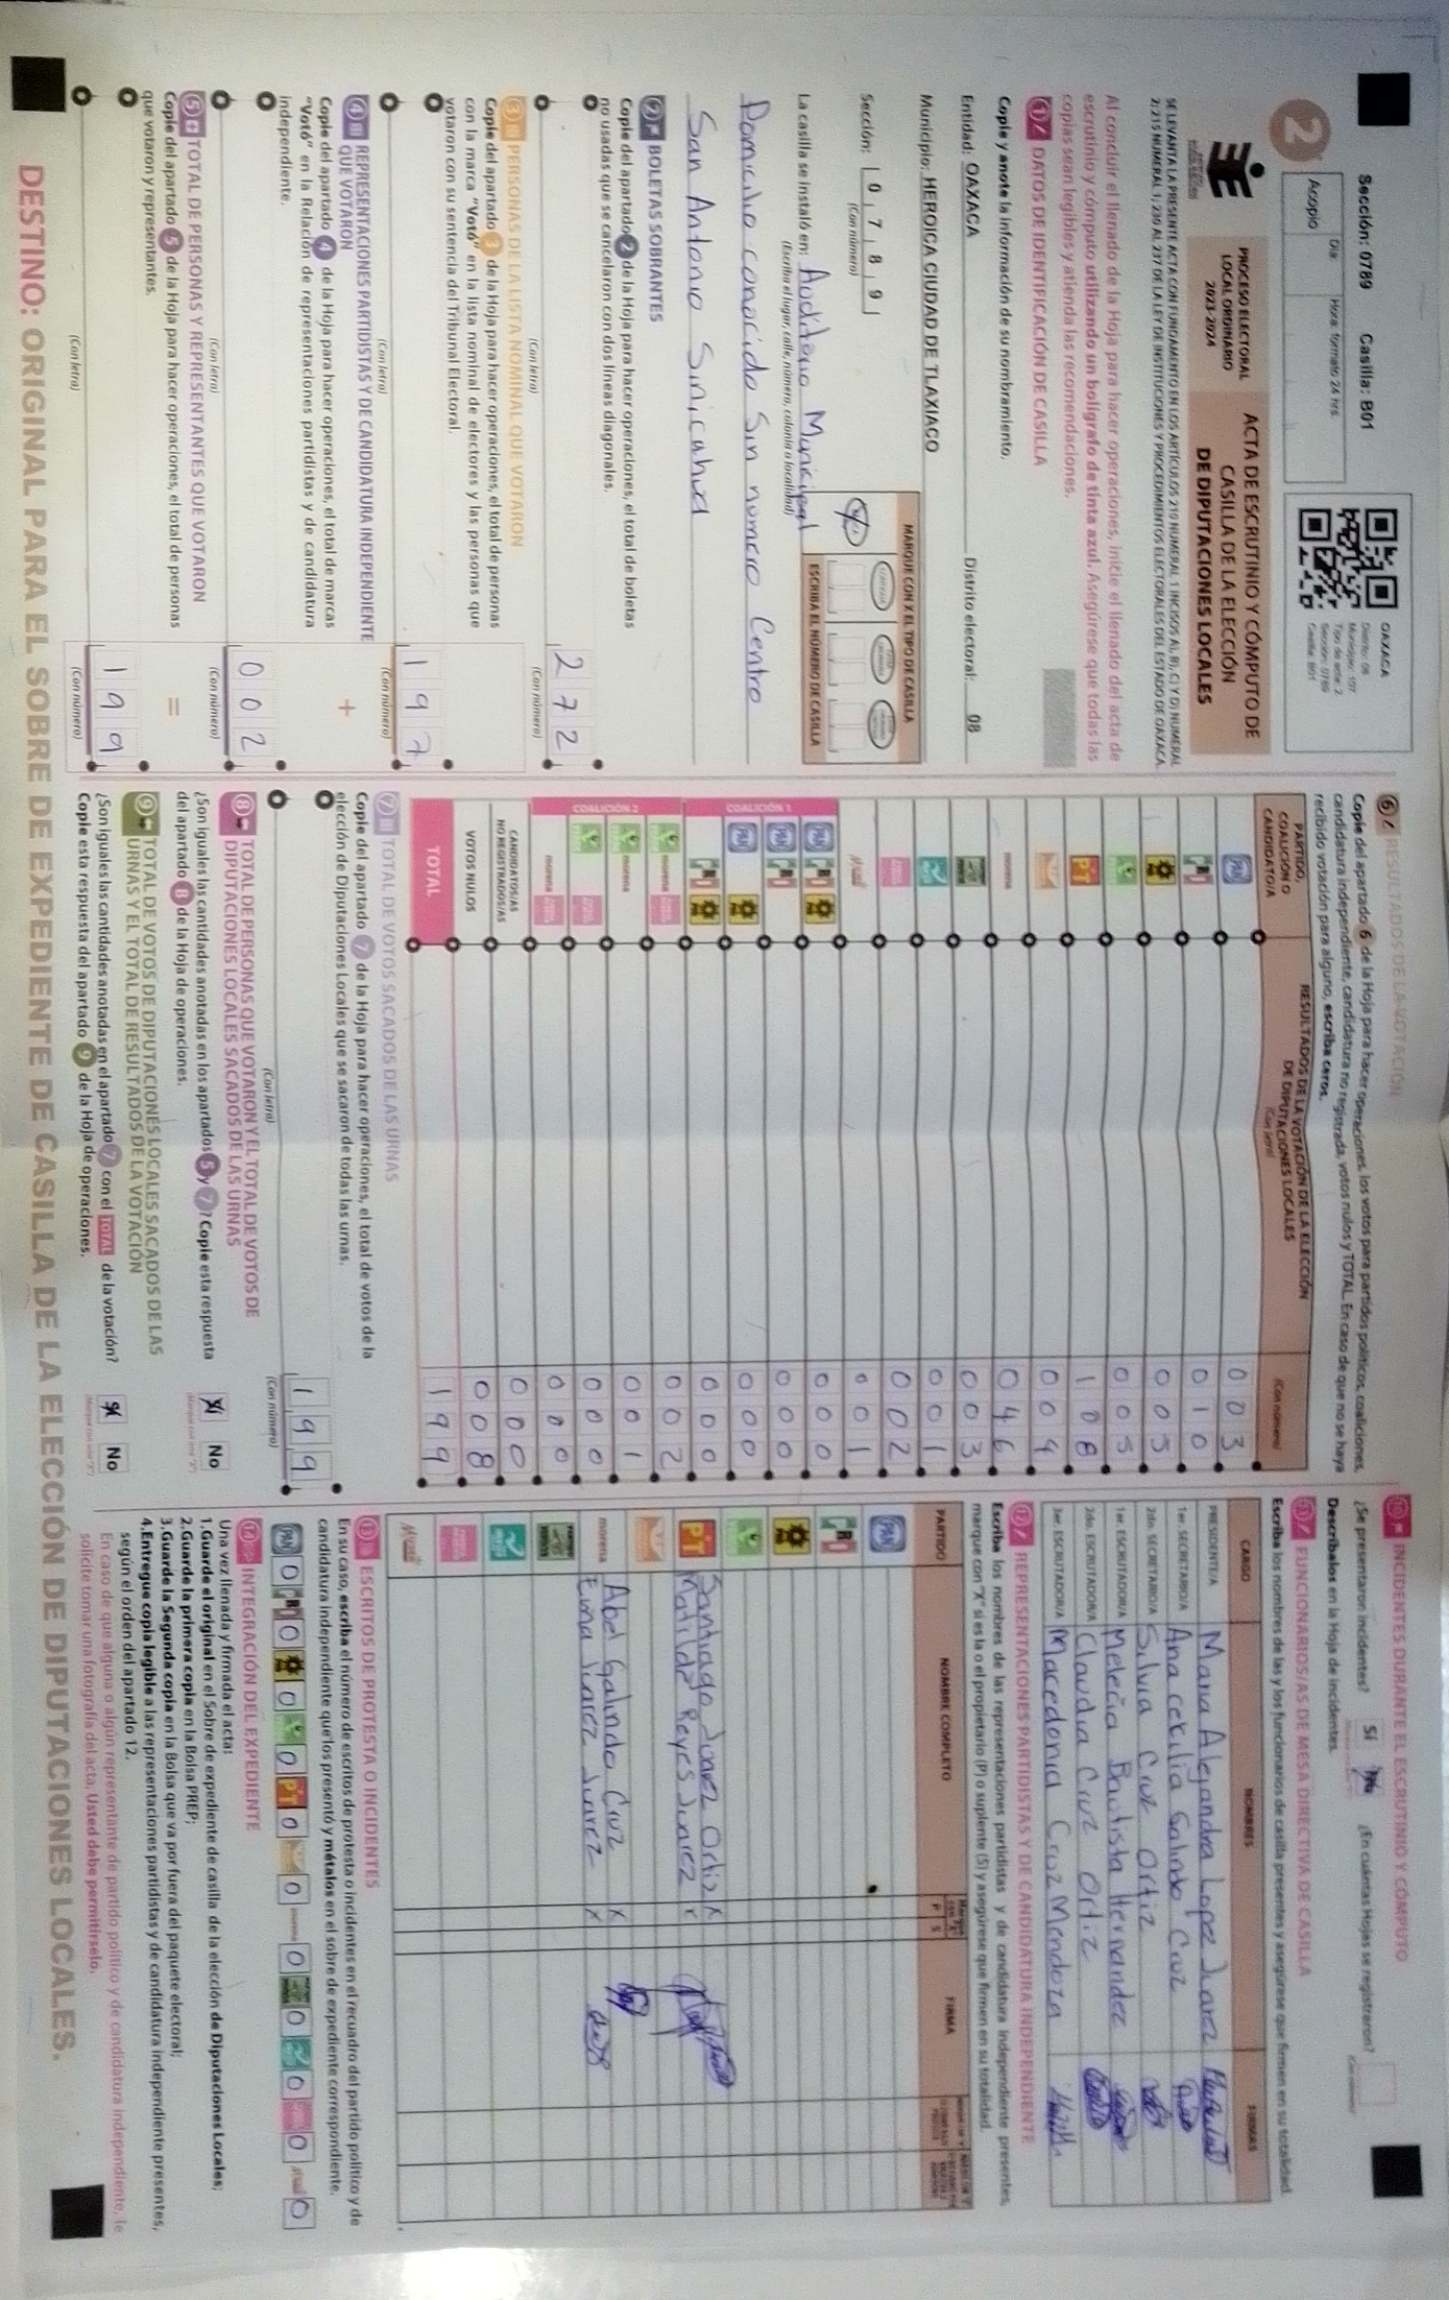 Sección: 0789 Casilla: B01
Día: Hora: formato 24 hrs.
Acopio
2
OAXACA
Distrito: 08
Municipio: 107
Tipo de acta: 2
Sección: 0789
Casilla: B01
PROCESO ELECTORAL
LOCAL ORDINARIO
2023-2024
ACTA DE ESCRUTINIO Y CÓMPUTO DE
CASILLA DE LA ELECCIÓN
DE DIPUTACIONES LOCALES
SE LEVANTA LA PRESENTE ACTA CON FUNDAMENTO EN LOS ARTÍCULOS 219 NUMERAL 1 INCISOS A), B), C) Y D) NUMERAL
2; 215 NUMERAL 1; 230 AL 237 DE LA LEY DE INSTITUCIONES Y PROCEDIMIENTOS ELECTORALES DEL ESTADO DE OAXACA.
Al concluir el llenado de la Hoja para hacer operaciones, inicie el llenado del acta de
escrutinio y cómputo utilizando un bolígrafo de tinta azul. Asegúrese que todas las
copias sean legibles y atienda las recomendaciones.
1 DATOS DE IDENTIFICACIÓN DE CASILLA
Copie y anote la información de su nombramiento.
Entidad: OAXACA Distrito electoral: 08
Municipio: HEROICA CIUDAD DE TLAXIACO
Sección: 0 7 8 9
(Con número)
MARQUE CON X EL TIPO DE CASILLA
ESCRIBA EL NÚMERO DE CASILLA
La casilla se instaló en: Auditorio Municipal
(Escriba el lugar, calle, número, colonia o localidad)
Domicilio conocido Sin numero Centro
San Antonio Sinicahua
2 BOLETAS SOBRANTES
Copie del apartado 2 de la Hoja para hacer operaciones, el total de boletas
no usadas que se cancelaron con dos líneas diagonales.
2 7 2
(Con letra) (Con número)
3 PERSONAS DE LA LISTA NOMINAL QUE VOTARON
Copie del apartado 3 de la Hoja para hacer operaciones, el total de personas
con la marca "Votó" en la lista nominal de electores y las personas que
votaron con su sentencia del Tribunal Electoral.
1 9 7
(Con letra) (Con número)
4 REPRESENTACIONES PARTIDISTAS Y DE CANDIDATURA INDEPENDIENTE
QUE VOTARON
Copie del apartado 4 de la Hoja para hacer operaciones, el total de marcas
"Votó" en la Relación de representaciones partidistas y de candidatura
independiente.
+
0 0 2
(Con letra) (Con número)
5 TOTAL DE PERSONAS Y REPRESENTANTES QUE VOTARON
Copie del apartado 5 de la Hoja para hacer operaciones, el total de personas
que votaron y representantes.
=
1 9 9
(Con letra) (Con número)
6 RESULTADOS DE LA VOTACIÓN
Copie del apartado 6 de la Hoja para hacer operaciones, los votos para partidos políticos, coaliciones,
candidatura independiente, candidatura no registrada, votos nulos y TOTAL. En caso de que no se haya
recibido votación para alguno, escriba ceros.
PARTIDO, COALICIÓN O CANDIDATO/A
RESULTADOS DE LA VOTACIÓN DE LA ELECCIÓN
DE DIPUTACIONES LOCALES
(Con letra) (Con número)
PAN 0 0 3
PRI 0 1 0
PRD 0 0 5
0 0 5
PT 1 0 8
0 0 4
morena 0 4 6
0 0 3
0 0 1
0 0 2
0 0 1
COALICIÓN 1
PAN PRI PRD 0 0 0
PAN PRI 0 0 0
PAN PRD 0 0 0
PRI PRD 0 0 0
COALICIÓN 2
morena 0 0 2
morena 0 0 1
0 0 0
morena 0 0 0
CANDIDATOS/AS
NO REGISTRADOS/AS 0 0 0
VOTOS NULOS 0 0 8
TOTAL 1 9 9
7 TOTAL DE VOTOS SACADOS DE LAS URNAS
Copie del apartado 7 de la Hoja para hacer operaciones, el total de votos de la
elección de Diputaciones Locales que se sacaron de todas las urnas.
1 9 9
(Con letra) (Con número)
8 TOTAL DE PERSONAS QUE VOTARON Y EL TOTAL DE VOTOS DE
DIPUTACIONES LOCALES SACADOS DE LAS URNAS
¿Son iguales las cantidades anotadas en los apartados 5 y 7? Copie esta respuesta
del apartado 8 de la Hoja de operaciones.
Sí No
9 TOTAL DE VOTOS DE DIPUTACIONES LOCALES SACADOS DE LAS
URNAS Y EL TOTAL DE RESULTADOS DE LA VOTACIÓN
¿Son iguales las cantidades anotadas en el apartado 7 con el TOTAL de la votación?
Copie esta respuesta del apartado 9 de la Hoja de operaciones.
Sí No
10 INCIDENTES DURANTE EL ESCRUTINIO Y CÓMPUTO
¿Se presentaron incidentes? Sí No ¿En cuántas Hojas se registraron?
Descríbalos en la Hoja de incidentes.
11 FUNCIONARIOS/AS DE MESA DIRECTIVA DE CASILLA
Escriba los nombres de las y los funcionarios de casilla presentes y asegúrese que firmen en su totalidad.
CARGO NOMBRES FIRMAS
PRESIDENTE/A Maria Alejandra Lopez Juarez
1er. SECRETARIO/A Ana cecilia Galindo Cruz
2do. SECRETARIO/A Silvia Cruz Ortiz
1er. ESCRUTADOR/A Melecia Bautista Hernandez
2do. ESCRUTADOR/A Claudia Cruz Ortiz
3er. ESCRUTADOR/A Macedonia Cruz Mendoza
12 REPRESENTACIONES PARTIDISTAS Y DE CANDIDATURA INDEPENDIENTE
Escriba los nombres de las representaciones partidistas y de candidatura independiente presentes,
marque con "X" si es la o el propietario (P) o suplente (S) y asegúrese que firmen en su totalidad.
PARTIDO NOMBRE COMPLETO P S FIRMA
PAN
PRI
PRD
PT Santiago Juarez Ortiz X
Matilde Reyes Juarez X
morena Abel Galindo Cruz X
Juarez Juarez X
13 ESCRITOS DE PROTESTA O INCIDENTES
En su caso, escriba el número de escritos de protesta o incidentes en el recuadro del partido político y de
candidatura independiente que los presentó y métalos en el sobre de expediente correspondiente.
PAN 0 PRI 0 PRD 0 0 PT 0 0 morena 0 0 0 0 0
14 INTEGRACIÓN DEL EXPEDIENTE
Una vez llenada y firmada el acta:
1. Guarde el original en el Sobre de expediente de casilla de la elección de Diputaciones Locales;
2. Guarde la primera copia en la Bolsa PREP;
3. Guarde la Segunda copia en la Bolsa que va por fuera del paquete electoral;
4. Entregue copia legible a las representaciones partidistas y de candidatura independiente presentes,
según el orden del apartado 12.
En caso de que alguna o algún representante de partido político y de candidatura independiente, le
solicite tomar una fotografía del acta, Usted debe permitírselo.
DESTINO: ORIGINAL PARA EL SOBRE DE EXPEDIENTE DE CASILLA DE LA ELECCIÓN DE DIPUTACIONES LOCALES.